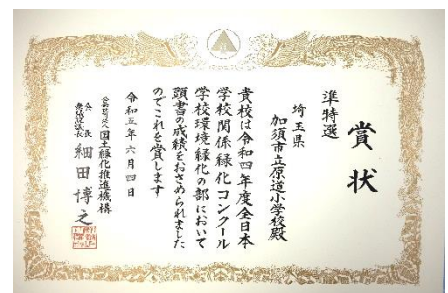 賞状
準特選
埼玉県
加須市立原道小学校殿
貴校は令和四年度全日本
学校関係緑化コンクール
学校環境緑化の部において
頭書の成績をおさめられました
のでこれを賞します
令和五年六月四日
公益社団法人国土緑化推進機構
会長
衆議院議長
細田博之